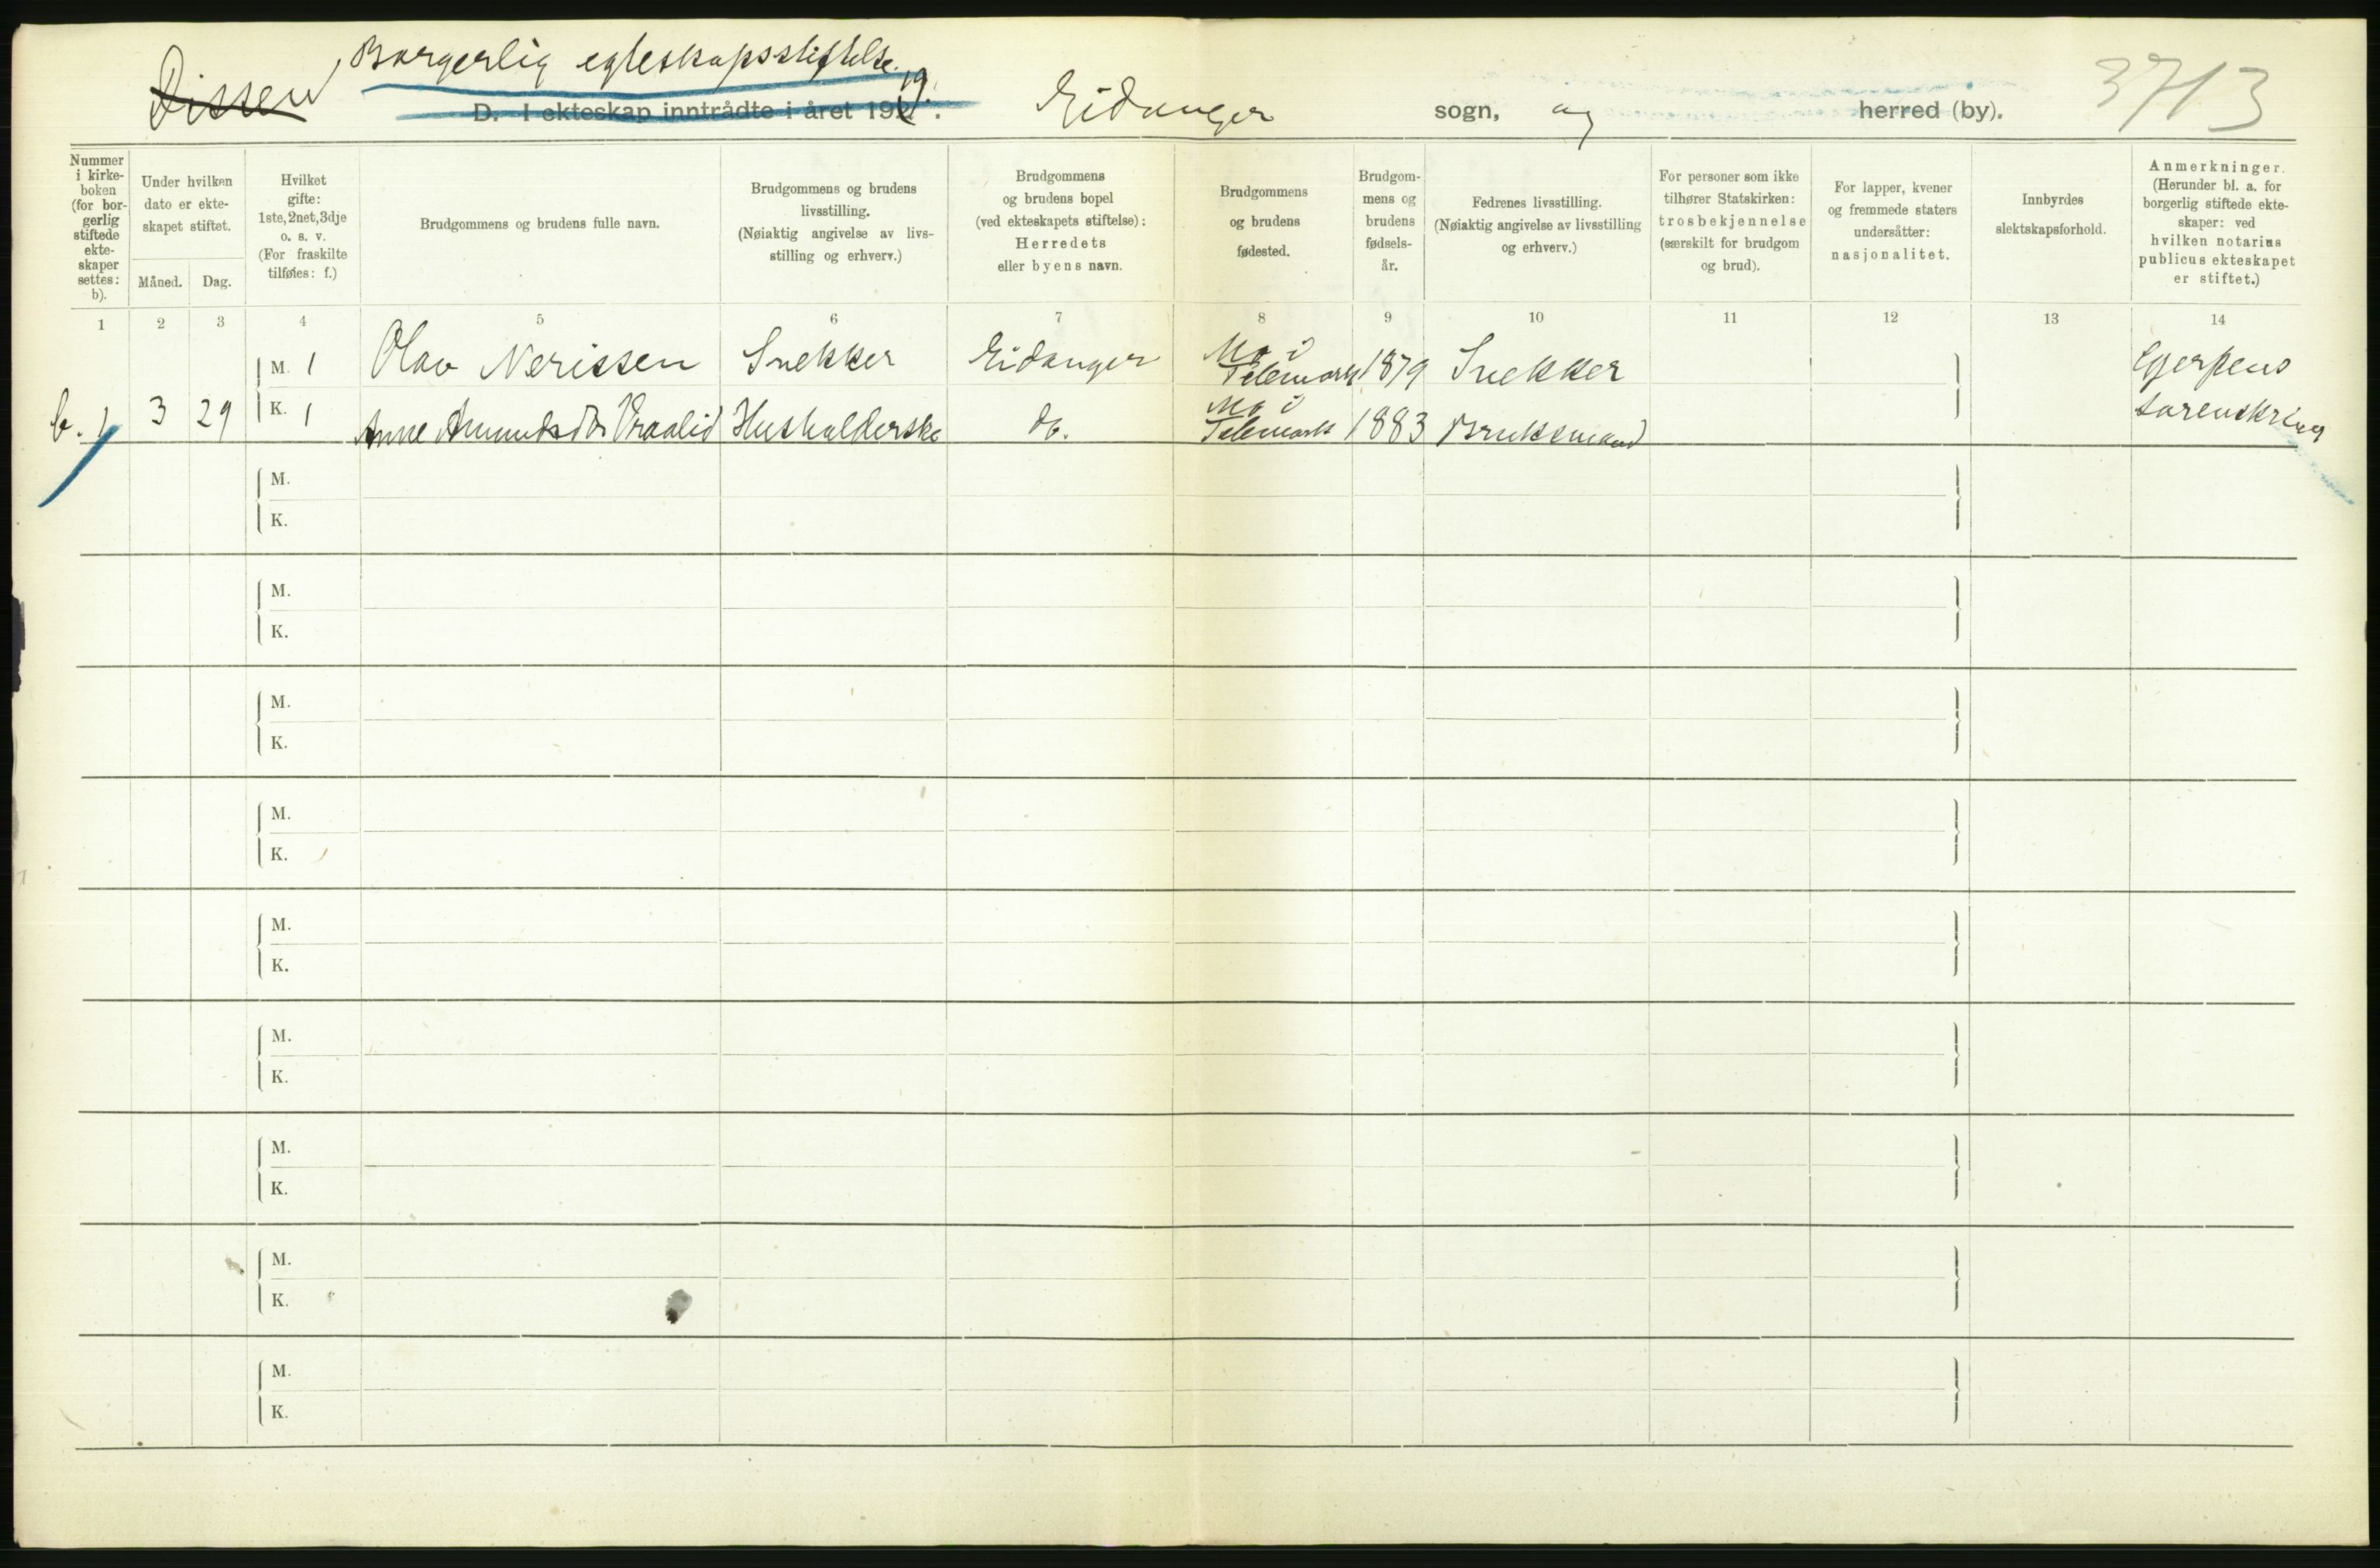 Borgerlig egteskapsstiftelse.
Dissen
D. I ekteskap inntrådte i året 19 19. Eidanger sogn, og herred (by). 3713
Nummer i kirkeboken (for borgerlig stiftede ekteskaper settes: b).
Under hvilken dato er ekteskapet stiftet.
Måned. Dag.
Hvilket gifte: 1ste, 2net, 3dje o. s. v. (For fraskilte tilføies: f.)
Brudgommens og brudens fulle navn.
Brudgommens og brudens livsstilling. (Nøiaktig angivelse av livsstilling og erhverv.)
Brudgommens og brudens bopel (ved ekteskapets stiftelse): Herredets eller byens navn.
Brudgommens og brudens fødested.
Brudgommens og brudens fødselsår.
Fedrenes livsstilling. (Nøiaktig angivelse av livsstilling og erhverv.)
For personer som ikke tilhører Statskirken: trosbekjennelse (særskilt for brudgom og brud).
For lapper, kvener og fremmede staters undersåtter: nasjonalitet.
Innbyrdes slektskapsforhold.
Anmerkninger. (Herunder bl. a. for borgerlig stiftede ekteskaper: ved hvilken notarius publicus ekteskapet er stiftet.)
1 2 3 4 5 6 7 8 9 10 11 12 13 14
M. 1 Olav Nerissen Snekker Eidanger Mo i Telemark 1879 Snekker Gjerpens
b. 1 3 29 K. 1 Anne Amundsdtr Vraalid Husholderske do. Mo i Telemark 1883 Bruksmand sorenskriveri
M.
K.
M.
K.
M.
K.
M.
K.
M.
K.
M.
K.
M.
K.
M.
K.
M.
K.